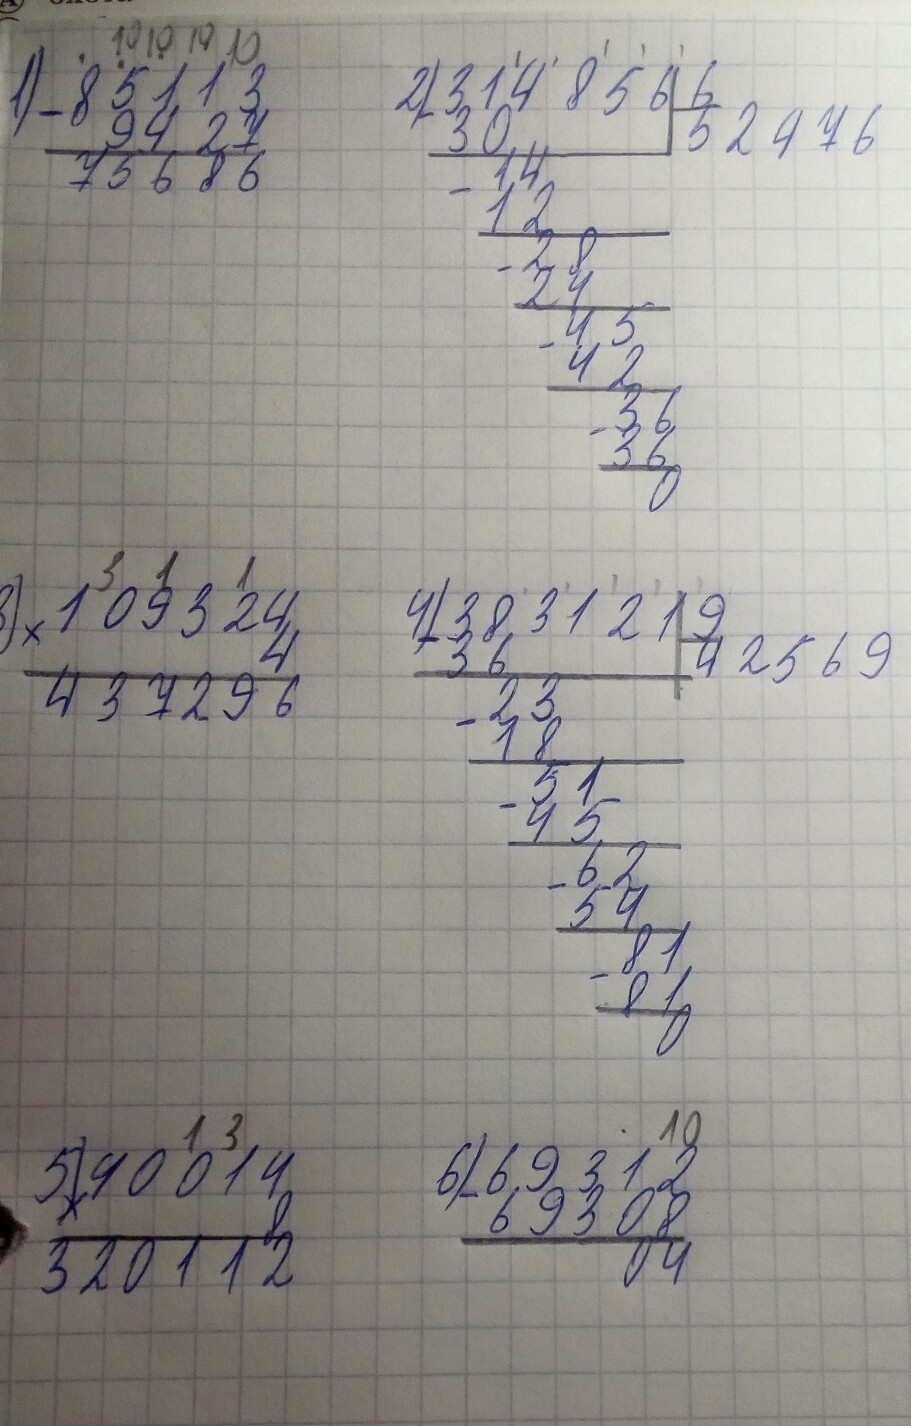 10 10 10 10
1) - 85113
9427
75686
2) - 314856 | 6
30 52476
- 14
12
- 28
24
- 45
42
- 36
36
0
3 1 1
3) × 109324
4
437296
4) - 383121 | 9
36 42569
- 23
18
- 51
45
- 62
54
- 81
81
0
1 3
5) × 40014
8
320112
10
6) - 69312
69308
04